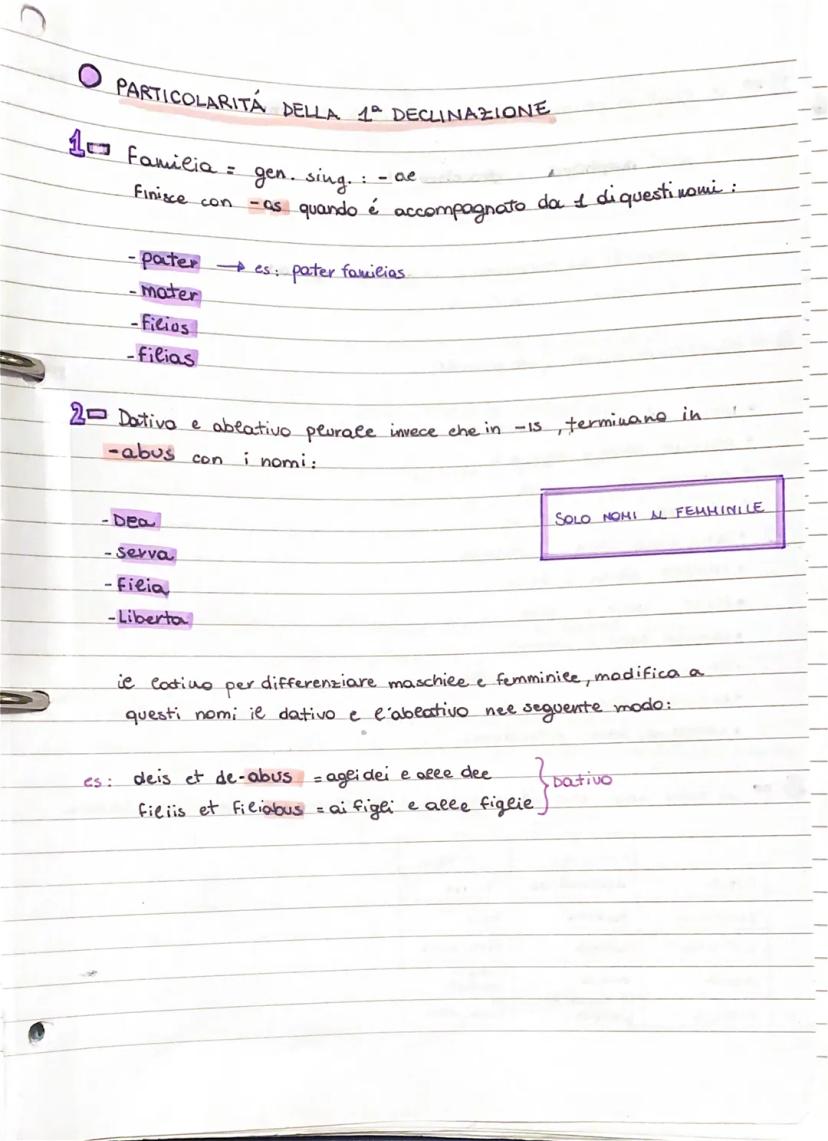 PARTICOLARITÁ DELLA 1ª DECLINAZIONE
1 Familia = gen. sing. : - ae
Finisce con -as quando é accompagnato da 1 di questi nomi :
- pater → es: pater familias
- mater
- filios
- filias
2 Dativo e ablativo plurale invece che in -is , terminano in
-abus con i nomi :
SOLO NOMI AL FEMMINILE
- Dea
- serva
- Filia
- Liberta
il latino per differenziare maschile e femminile, modifica a
questi nomi il dativo e l'ablativo nel seguente modo :
es : deis et de-abus = agli dei e alle dee } Dativo
filiis et filiabus = ai figli e alle figlie